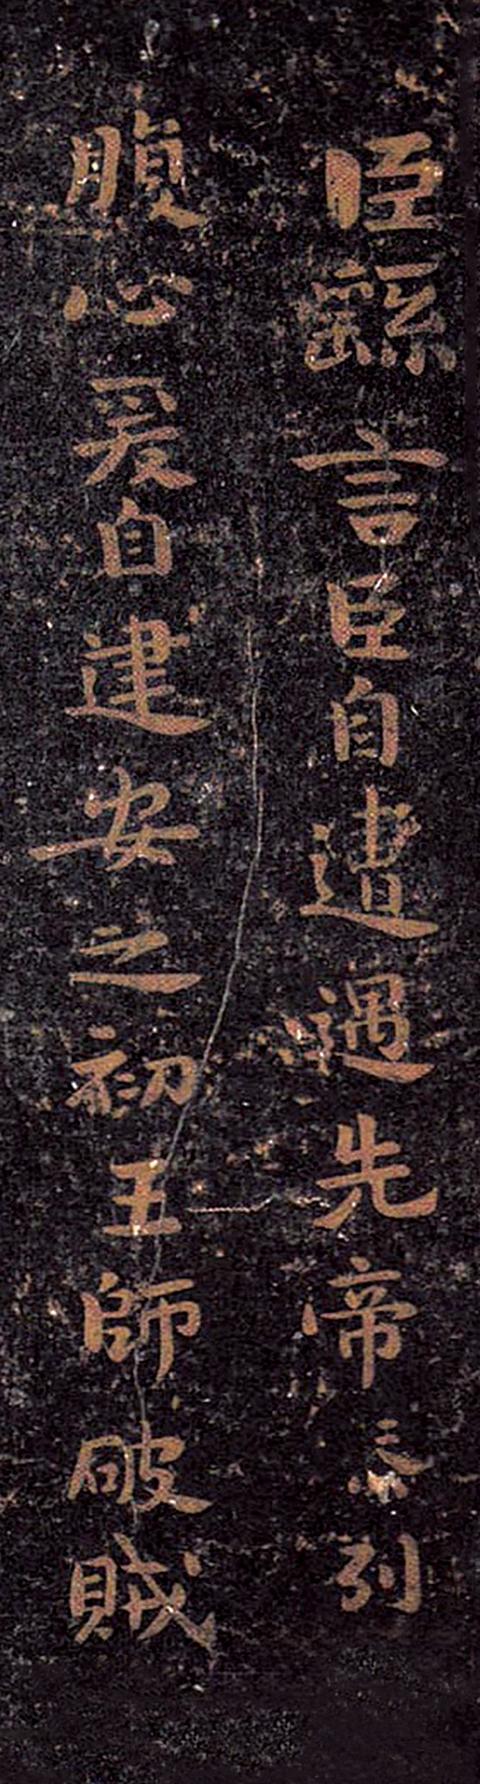 臣繇言臣自遭遇先帝忝列
腹心爰自建安之初王師破賊